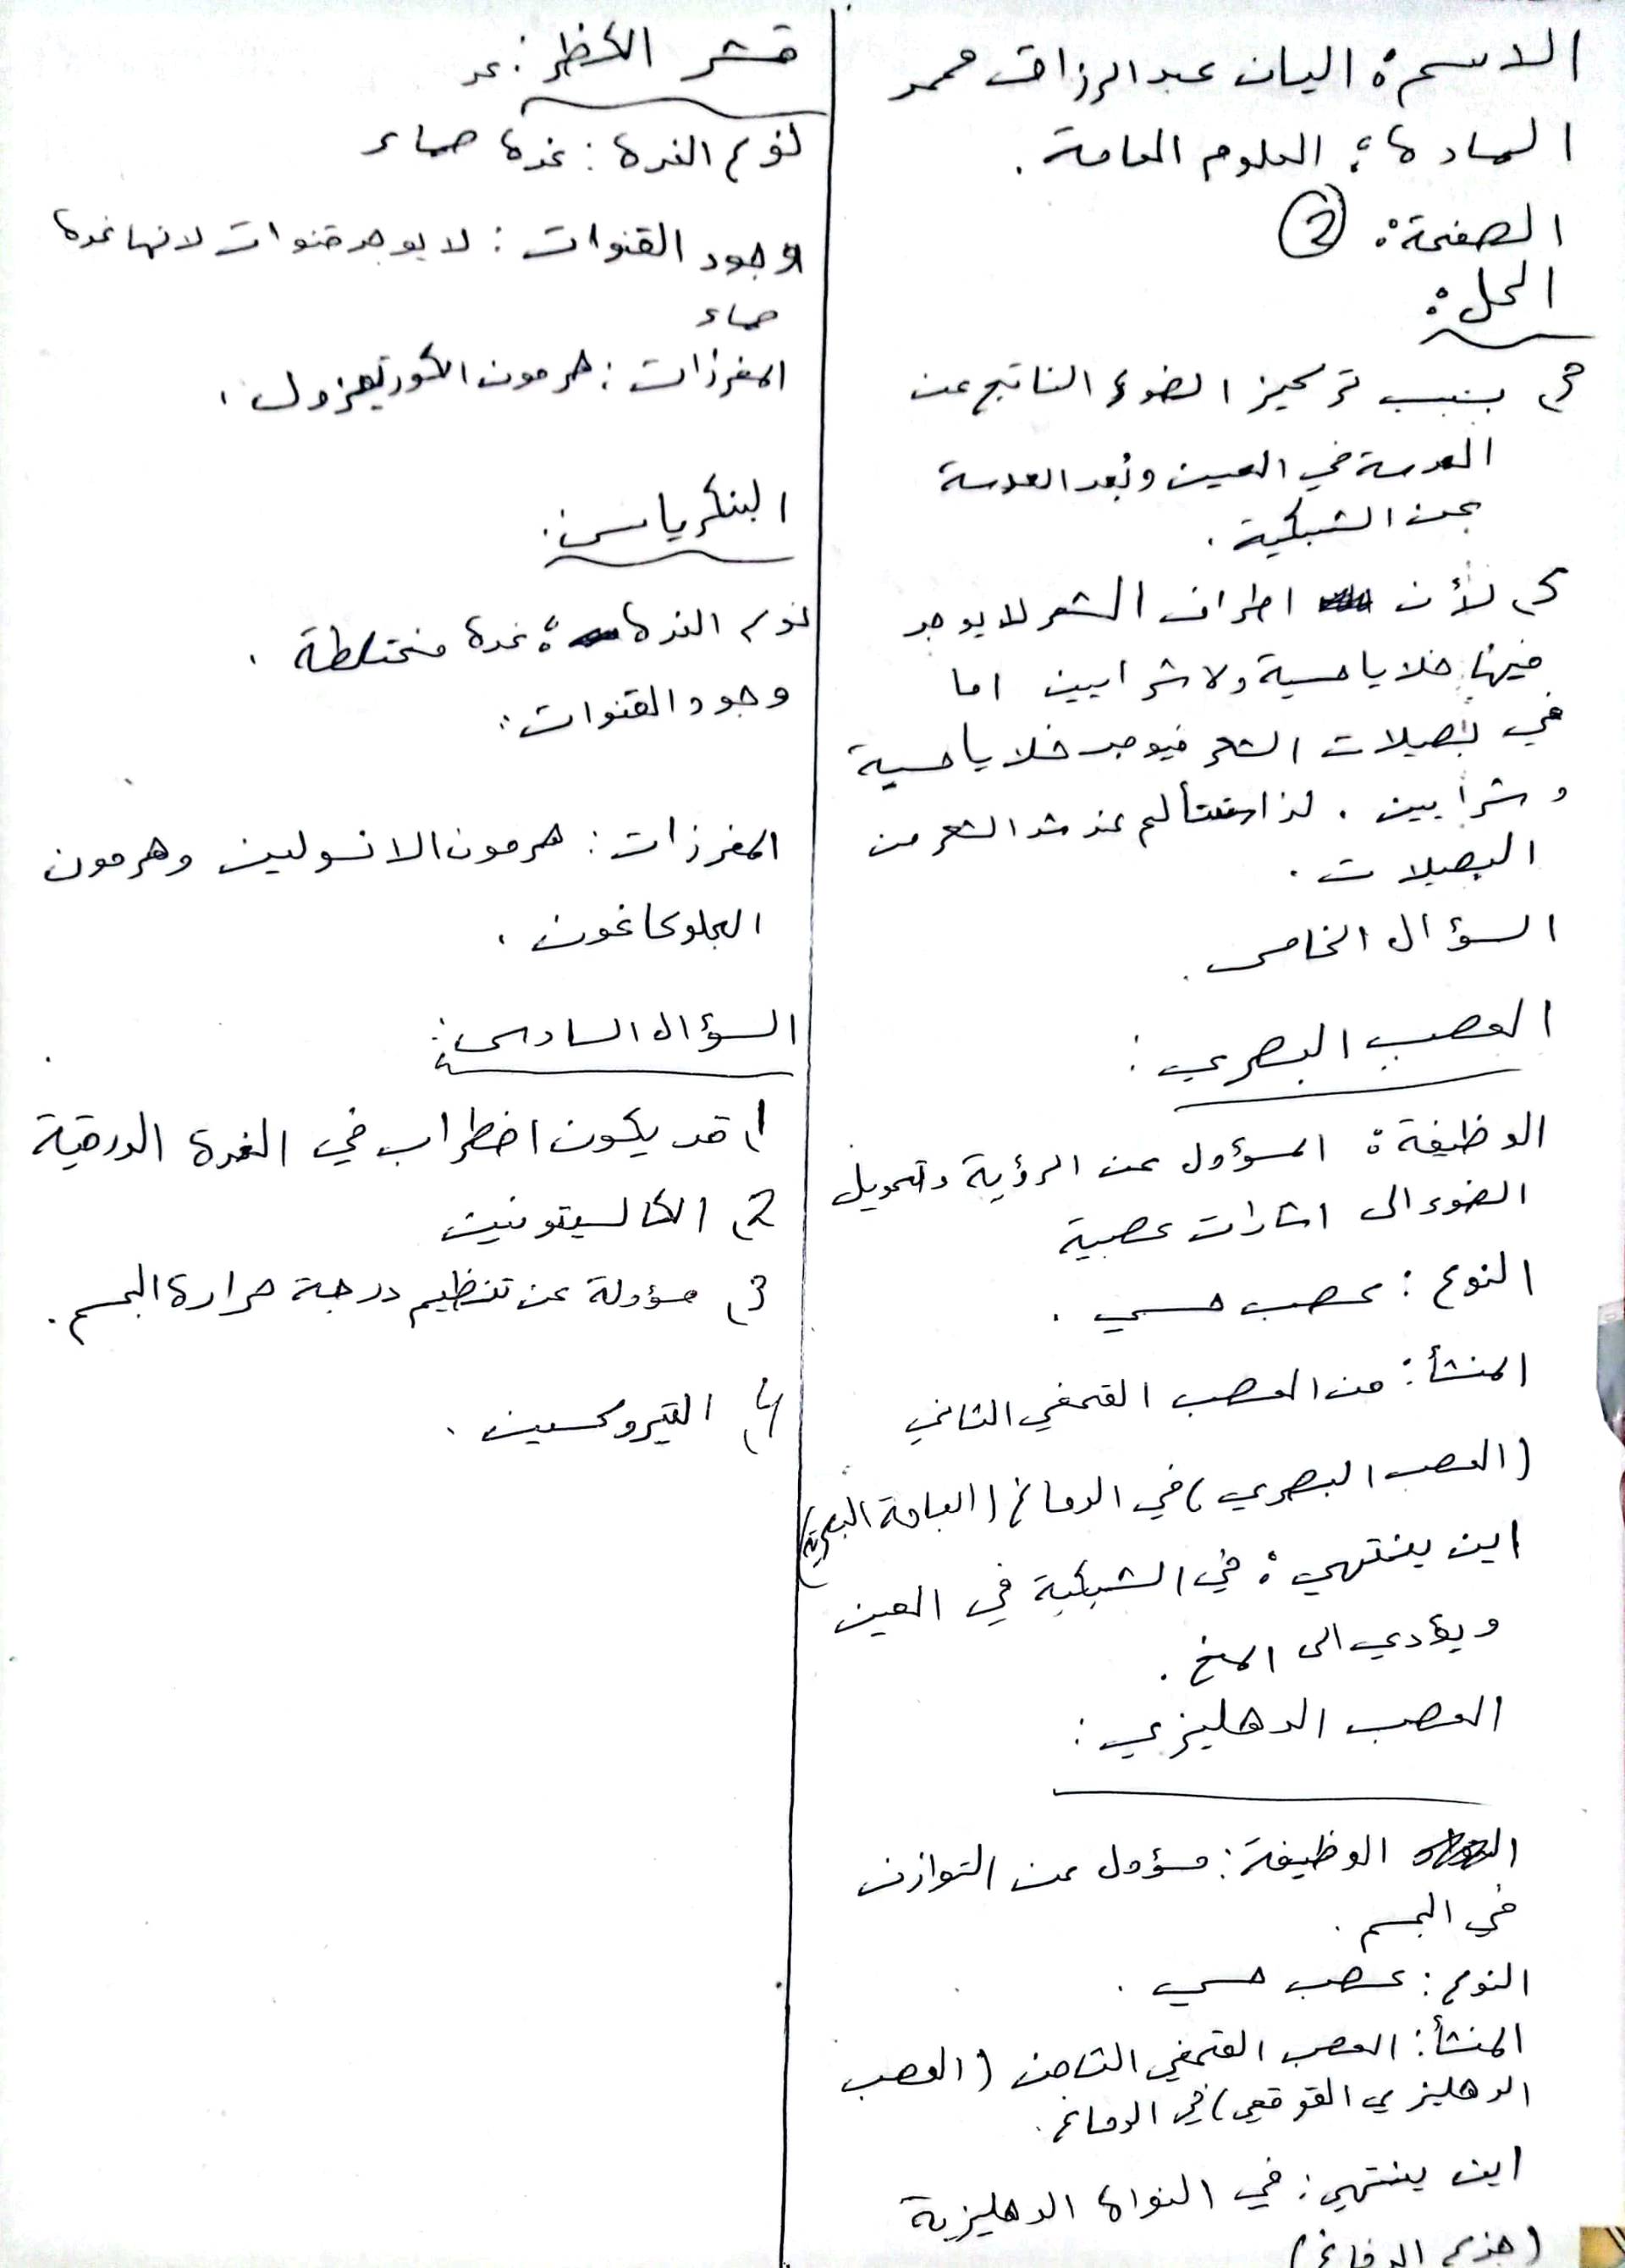 الاسم: اليان عبد الرزاق محمد
المادة: العلوم العامة.
الصفحة: 2
الحل:
بسبب تركيز الضوء الناتج عن
العدسة في العين وبُعد العدسة
عن الشبكية.
لأن اطراف الشعر لا يوجد
فيها خلايا حسية ولا شرايين اما
في بصيلات الشعر فيوجد خلايا حسية
وشرايين. لذا سنتألم عند شد الشعر من
البصيلات.
السؤال الخامس.
العصب البصري:
الوظيفة: المسؤول عن الرؤية وتحويل
الضوء الى اشارات عصبية
النوع: عصب حسي.
المنشأ: من العصب القحفي الثاني
(العصب البصري) في الدماغ (
اين ينتهي: في الشبكية في العين
ويؤدي الى المخ.
العصب الدهليزي:
الوظيفة: مسؤول عن التوازن
في الجسم.
النوع: عصب حسي.
المنشأ: العصب القحفي الثامن (العصب
الدهليزي القوقعي) في الدماغ.
اين ينتهي: في النواة الدهليزية
(جذع الدماغ)
قشر الكظر:
نوع الغدة: غدة صماء
وجود القنوات: لا يوجد قنوات لانها غدة
صماء
المفرزات: هرمون الكورتيزول.
البنكرياس:
نوع الغدة: غدة مختلطة.
وجود القنوات:
المفرزات: هرمون الانسولين وهرمون
الجلوكاغون.
السؤال السادس:
1) قد يكون اضطراب في الغدة الدرقية
2) الكالسيتونين
3) مسؤولة عن تنظيم درجة حرارة الجسم.
4) التيروكسين.